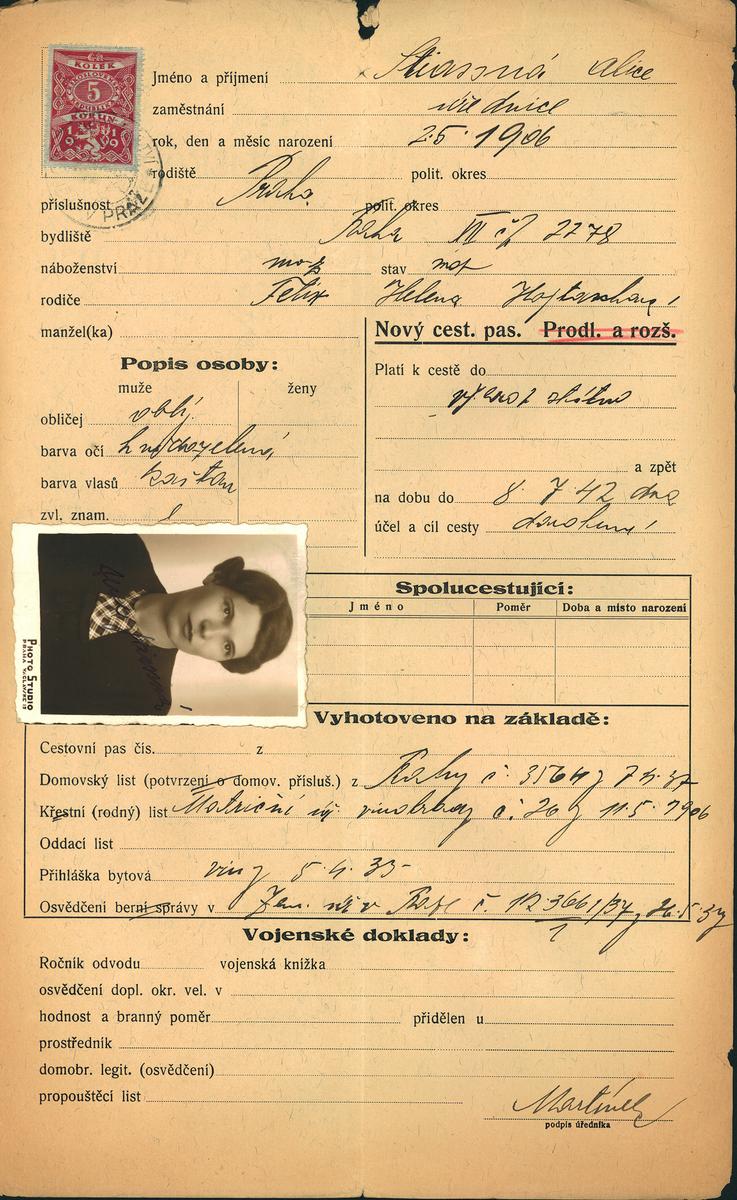 KOLEK
5
KORUN
1919
PRAZE
Jméno a příjmení Stiassná Alice
zaměstnání úřednice
rok, den a měsíc narození 2.5. 1906
rodiště polit. okres
příslušnost Praha polit. okres
bydliště Praha XII čp 2278
náboženství stav
rodiče Felix Helena
manžel(ka)
Nový cest. pas. Prodl. a rozš.
Popis osoby:
muže ženy
obličej oblý
barva očí hnědozelená
barva vlasů kaštan
zvl. znam.
Platí k cestě do
a zpět
na dobu do 8. 7. 42
účel a cíl cesty dovolená
PHOTO STUDIO
PRAHA
Spolucestující:
Jméno Poměr Doba a místo narození
Vyhotoveno na základě:
Cestovní pas čís. z
Domovský list (potvrzení o domov. přísluš.) z Prahy č.
Křestní (rodný) list Matriční úř. vinohrady č. 26 z 11.5. 1906
Oddací list
Přihláška bytová vin z 5. 4. 35
Osvědčení berní správy v Zem. úř v č. 12.366/37 z 26.5.37
Vojenské doklady:
Ročník odvodu vojenská knížka
osvědčení dopl. okr. vel. v
hodnost a branný poměr přidělen u
prostředník
domobr. legit. (osvědčení)
propouštěcí list
Martínek
podpis úředníka